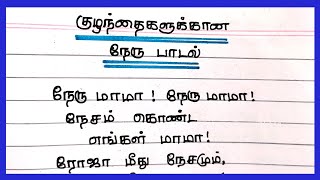 குழந்தைகளுக்கான
நேரு பாடல்
நேரு மாமா! நேரு மாமா!
நேசம் கொண்ட
எங்கள் மாமா!
ரோஜா மீது நேசமும்,